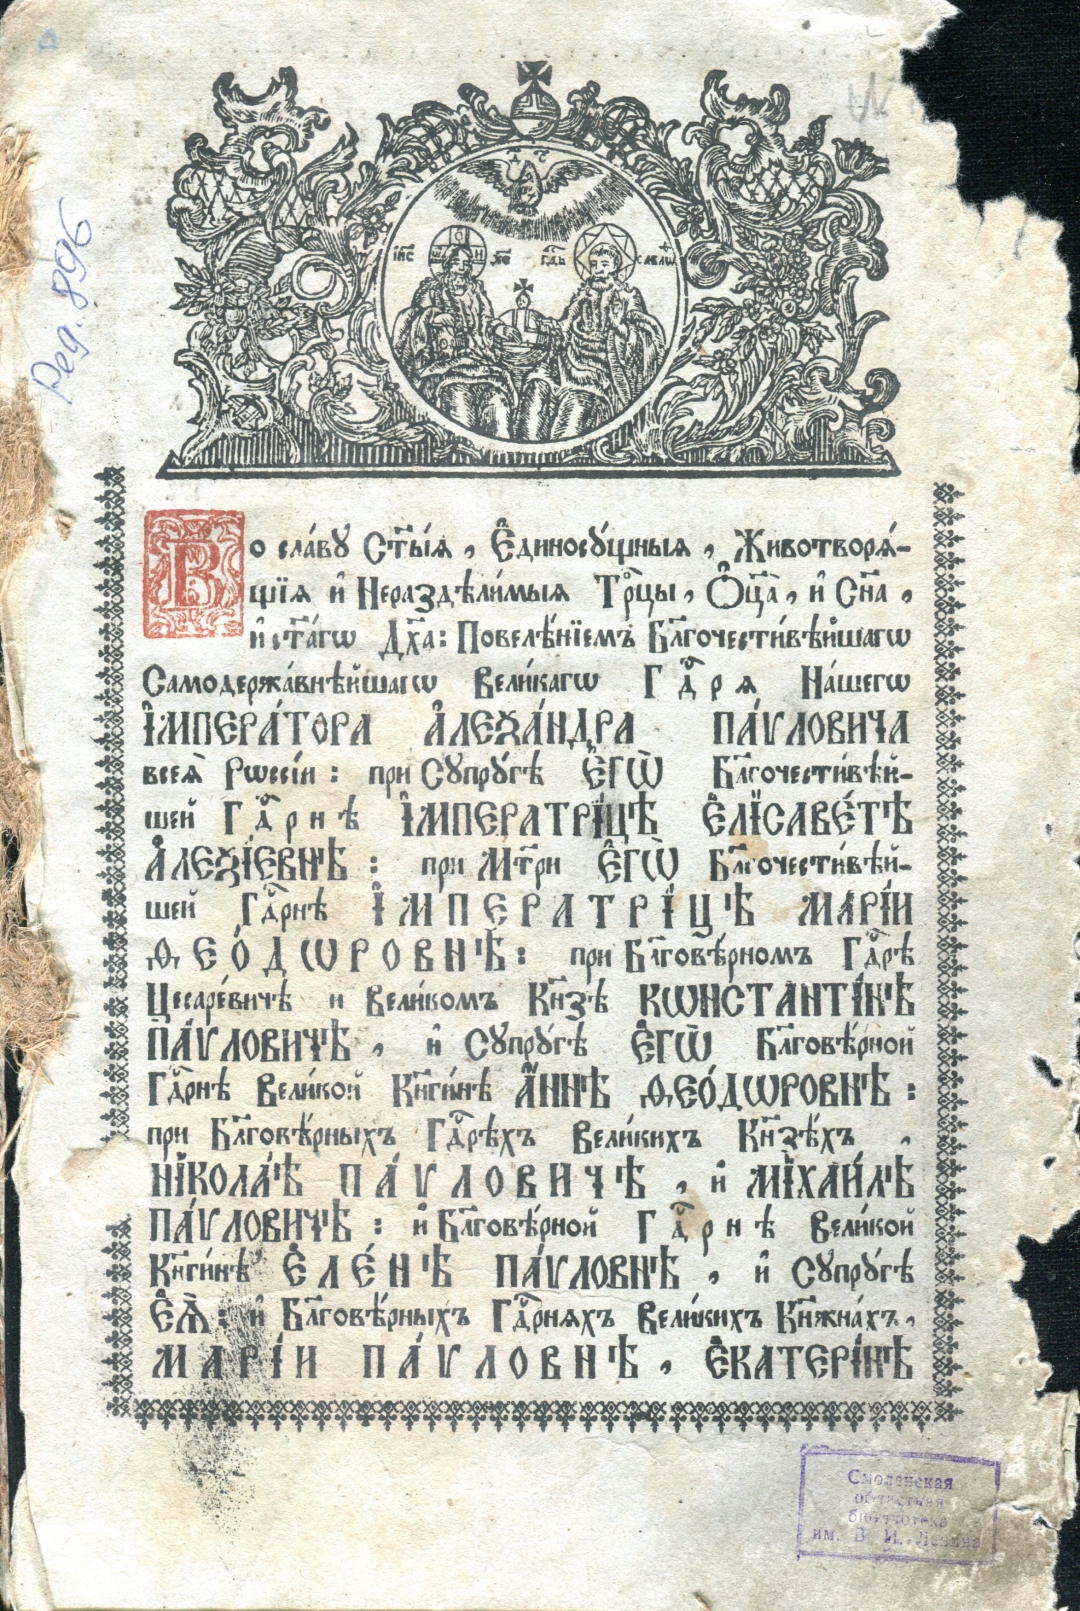 Д С
ІИС ХС Г҃дь саваѡ
Ред. 896
Во сла́ву Ст҃ы́ѧ, Є҆диносꙋ́щныѧ, Животворѧ́-
щїѧ и҆ Нераздѣли́мыѧ Трⷪ҇цы, Ѻ҆ц҃а̀, и҆ Сн҃а,
и҆ ст҃а́гѡ Дх҃а: Повелѣ́нїемъ Бл҃гочести́вѣйшагѡ
Самодержа́внѣйшагѡ Вели́кагѡ Гдⷭ҇рѧ На́шегѡ
І҆МПЕРА́ТОРА А҆ЛЕѮА́НДРА ПА́ѴЛОВИЧА
всеѧ̀ Рѡссі́и: при Сꙋпрꙋ́гѣ Є҆ГѠ̀ Бл҃гочести́вѣй-
шей Гдⷭ҇рнѣ І҆МПЕРАТРІ́ЦѢ Є҆ЛІСАВЕ́ТѢ
А҆ЛЕѮІ́ЕВНѢ: при Мт҃ри Є҆ГѠ̀ Бл҃гочести́вѣй-
шей Гдⷭ҇рнѣ І҆МПЕРАТРІ́ЦѢ МАРІ́И
ѲЕО́ДѠРОВНѢ: при Бл҃говѣ́рномъ Гдⷭ҇рѣ
Цесаре́вичѣ и Вели́комъ Кн҃зѣ КѠНСТАНТІ́НѢ
ПА́ѴЛОВИЧѢ, и҆ Сꙋпрꙋ́гѣ Є҆ГѠ̀ Бл҃говѣ́рной
Гдⷭ҇рнѣ Вели́кой Кн҃ги́нѣ А҆́ННѢ ѲЕО́ДѠРОВНѢ:
при Бл҃говѣ́рныхъ Гдⷭ҇рѣхъ Вели́кихъ Кн҃зѣхъ,
НІКОЛА́Ѣ ПА́ѴЛОВИЧѢ, и҆ МІХАИ́ЛѢ
ПА́ѴЛОВИЧѢ: и҆ Бл҃говѣ́рной Гдⷭ҇рнѣ Вели́кой
Кн҃ги́нѣ Є҆ЛЕ́НѢ ПА́ѴЛОВНѢ, и҆ Сꙋпрꙋ́гѣ
Є҆Ѧ̀: и҆ Бл҃говѣ́рныхъ Гдⷭ҇рнѧхъ Вели́кихъ Кн҃жна́хъ,
МАРІ́И ПА́ѴЛОВНѢ, Є҆КАТЕРІ́НѢ
Смоленская
областная
библиотека
им. В. И. Ленина